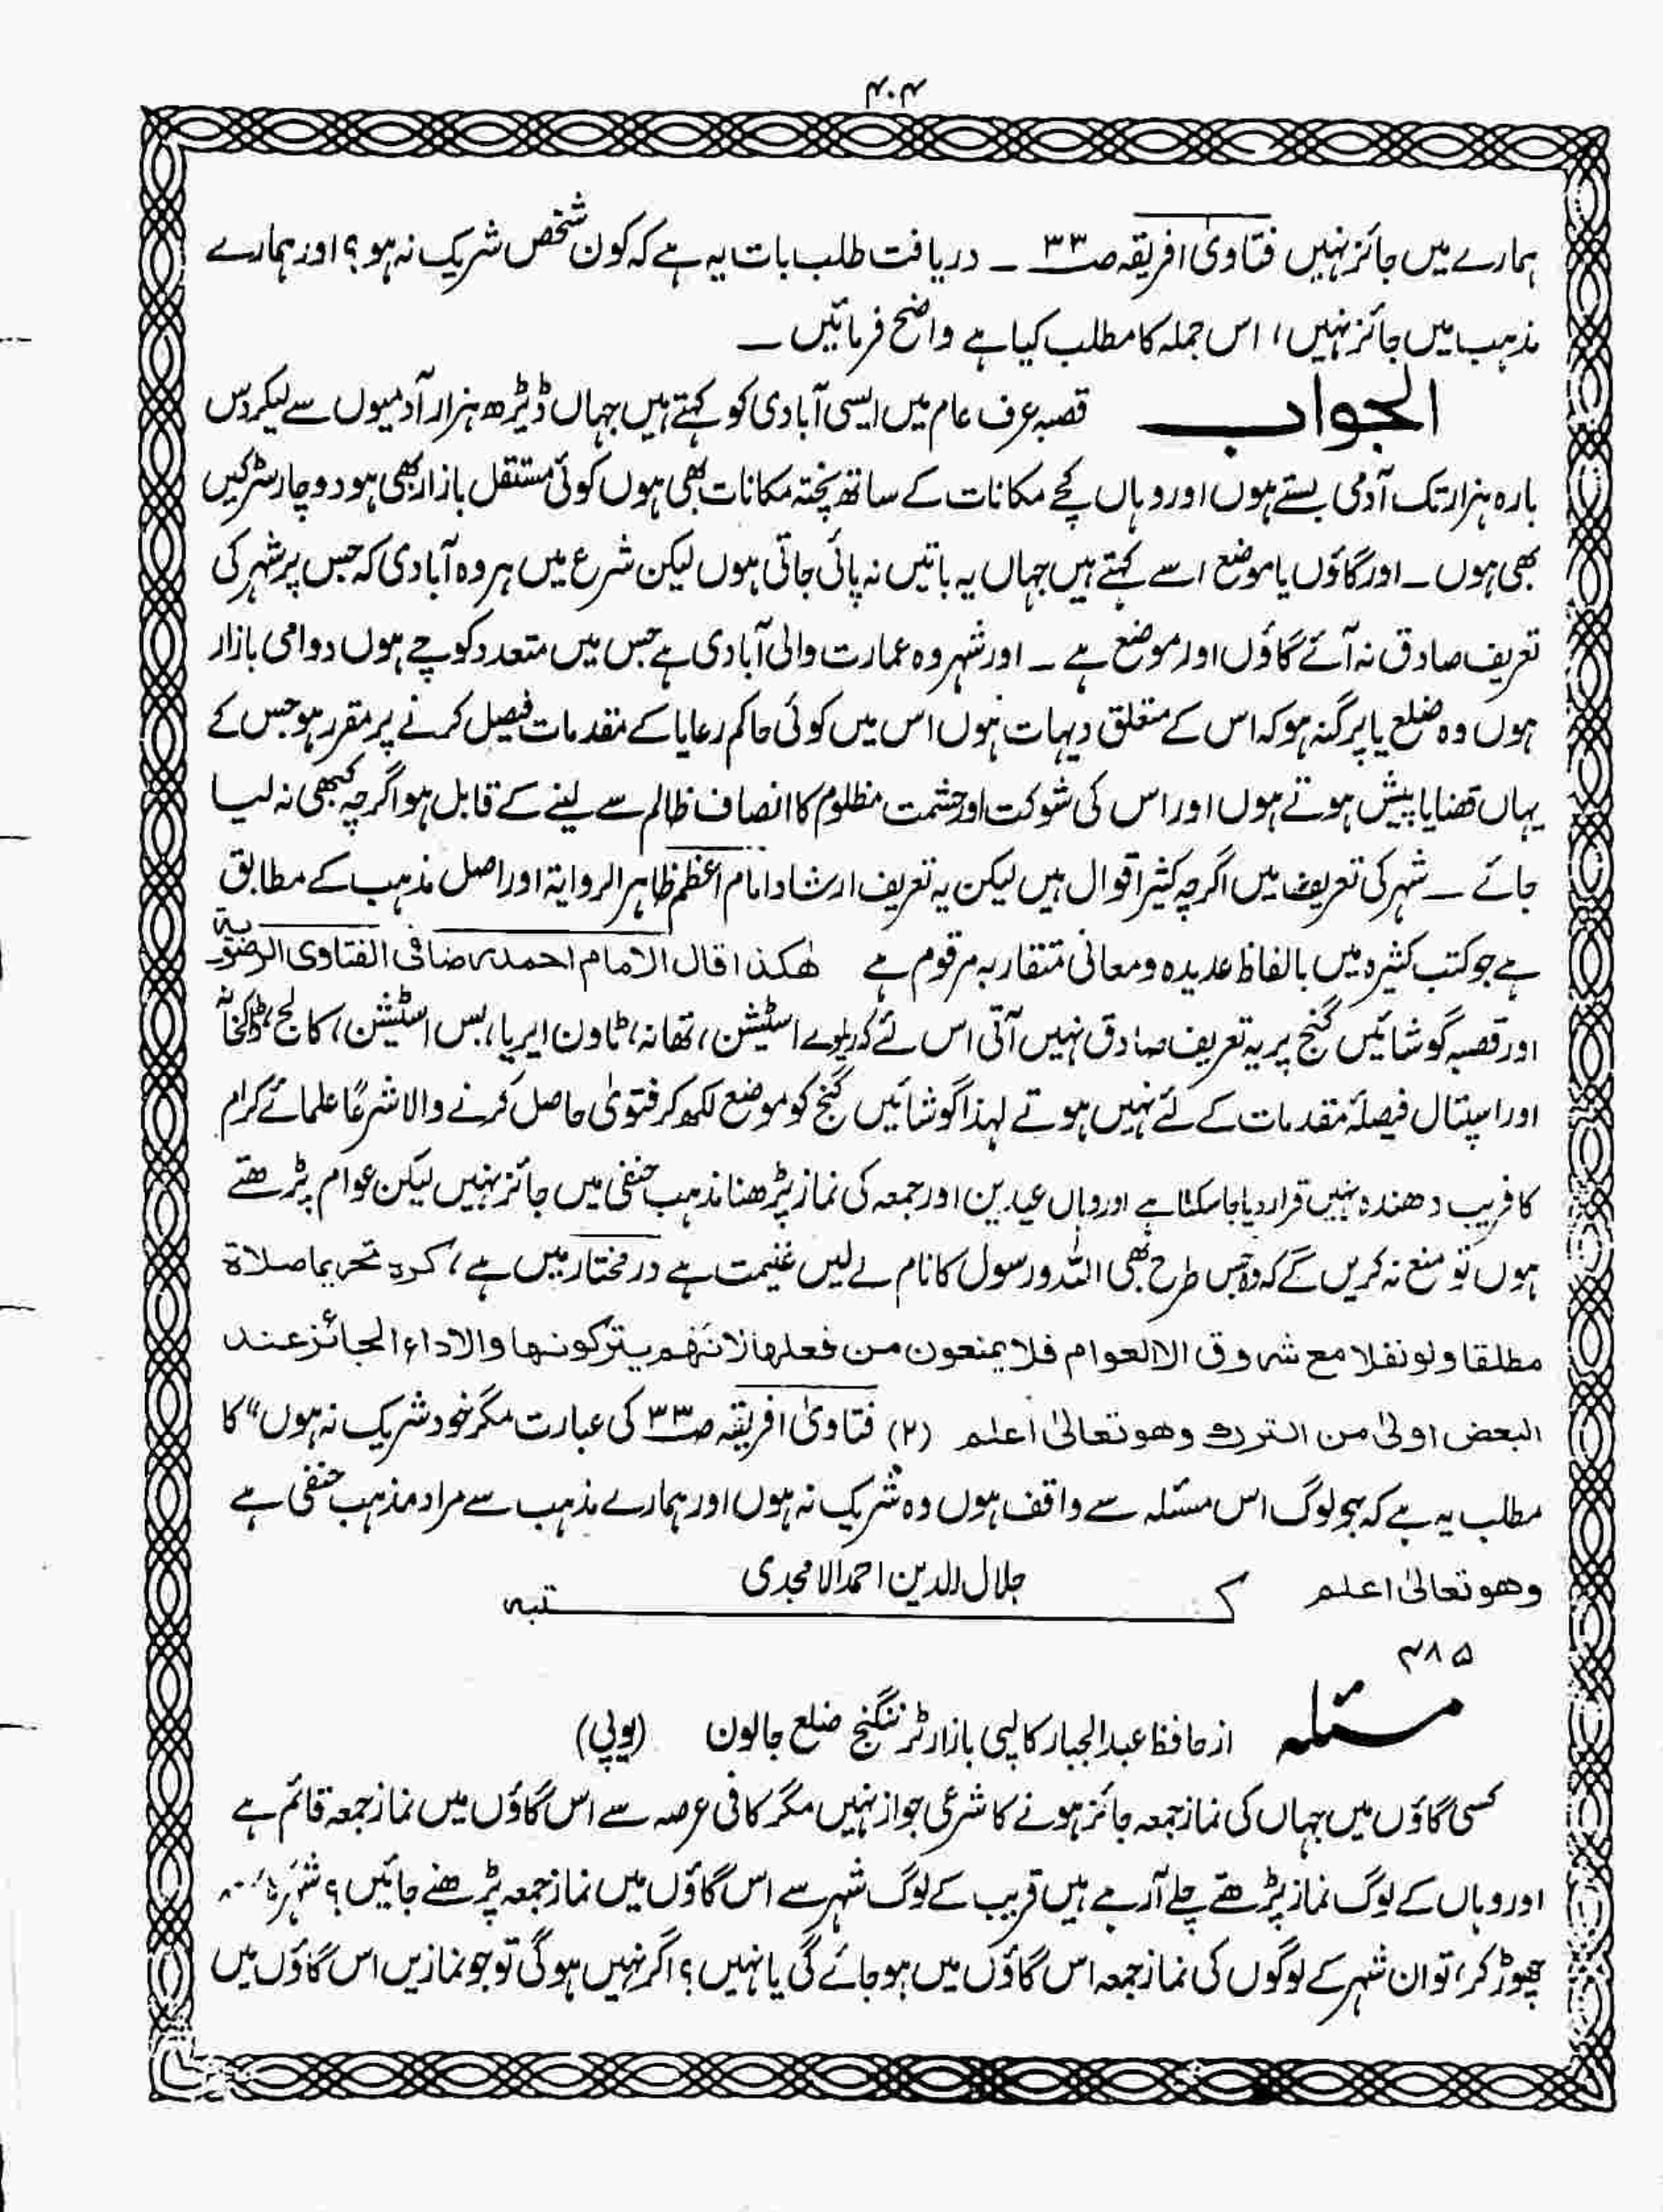 ۴۰۴
ہمارے میں جائز نہیں فتاویٰ افریقہ صـ۳۳ ۔ دریافت طلب بات یہ ہے کہ کون شخص شریک نہ ہو؟ اور ہمارے
مذہب میں جائز نہیں، اس جملہ کا مطلب کیا ہے واضح فرمائیں ۔
الجواب قصبہ عرف عام میں ایسی آبادی کو کہتے ہیں جہاں ڈیڑھ ہزار آدمیوں سے لیکر دس
بارہ ہزار تک آدمی بستے ہوں اور وہاں کچے مکانات کے ساتھ پختہ مکانات بھی ہوں کوئی مستقل بازار بھی ہو دو چار سڑکیں
بھی ہوں ۔ اور گاؤں یا موضع اسے کہتے ہیں جہاں یہ باتیں نہ پائی جاتی ہوں لیکن شرع میں ہر وہ آبادی کہ جس پر شہر کی
تعریف صادق نہ آئے گاؤں اور موضع ہے ۔ اور شہر وہ عمارت والی آبادی ہے جس میں متعدد کوچے ہوں دوامی بازار
ہوں وہ ضلع یا پرگنہ ہو کہ اس کے متعلق دیہات ہوں اس میں کوئی حاکم رعایا کے مقدمات فیصل کرنے پر مقرر ہو جس کے
یہاں قضایا پیش ہوتے ہوں اور اس کی شوکت اور حشمت مظلوم کا انصاف ظالم سے لینے کے قابل ہو اگرچہ کبھی نہ لیا
جائے ۔ شہر کی تعریف میں اگرچہ کثیر اقوال ہیں لیکن یہ تعریف ارشاد امام اعظم ظاہر الروایۃ اور اصل مذہب کے مطابق
ہے جو کتب کثیرہ میں بالفاظ عدیدہ و معانی متقاربہ مرقوم ہے ھٰکذا قال الامام احمد رضا فی الفتاوی الرضویۃ
اور قصبہ گوشائیں گنج پر یہ تعریف صادق نہیں آتی اس لئے کہ ریلوے اسٹیشن، تھانہ، ٹاون ایریا، بس اسٹیشن، کالج، ڈاکخانہ
اور اسپتال فیصلۂ مقدمات کے لئے نہیں ہوتے لہذا گوشائیں گنج کو موضع لکھ کر فتویٰ حاصل کرنے والا شرعًا علمائے کرام
کا فریب دھندہ نہیں قرار دیا جا سکتا ہے اور وہاں عیدین اور جمعہ کی نماز پڑھنا مذہب حنفی میں جائز نہیں لیکن عوام پڑھتے
ہوں تو منع نہ کریں گے کہ وہ جس طرح بھی اللہ و رسول کا نام لے لیں غنیمت ہے در مختار میں ہے، کرہ تحریما صلاۃ
مطلقا ولو نفلا مع شروق الا العوام فلا یمنعون من فعلھا لانھم یترکونھا والاداء الجائز عند
البعض اولیٰ من الترک وھو تعالیٰ اعلم (۲) فتاویٰ افریقہ صـ۳۳ کی عبارت مگر خود شریک نہ ہوں" کا
مطلب یہ ہے کہ جو لوگ اس مسئلہ سے واقف ہوں وہ شریک نہ ہوں اور ہمارے مذہب سے مراد مذہب حنفی ہے
وھو تعالیٰ اعلم کتبہ جلال الدین احمد الامجدی
۴۸۵
مسئلہ از حافظ عبد الجبار کالپی بازار ٹرننگنج ضلع جالون (یوپی)
کسی گاؤں میں جہاں کی نماز جمعہ جائز ہونے کا شرعی جواز نہیں مگر کافی عرصہ سے اس گاؤں میں نماز جمعہ قائم ہے
اور وہاں کے لوگ نماز پڑھتے چلے آرہے ہیں قریب کے لوگ شہر سے اس گاؤں میں نماز جمعہ پڑھنے جائیں؟ شہر
چھوڑ کر، تو ان شہر کے لوگوں کی نماز جمعہ اس گاؤں میں ہو جائے گی یا نہیں؟ اگر نہیں ہوگی تو جو نمازیں اس گاؤں میں